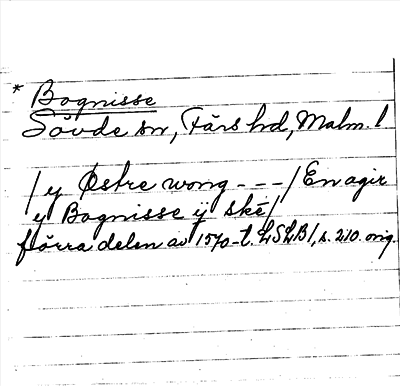 * Bognisse
Sövde sn, Färs hd, Malm. l
/ y Østre wong - - - / En agir
y Bognisse ÿ ské /
förra delen av 1570-t. LSLB1, s. 210. orig.